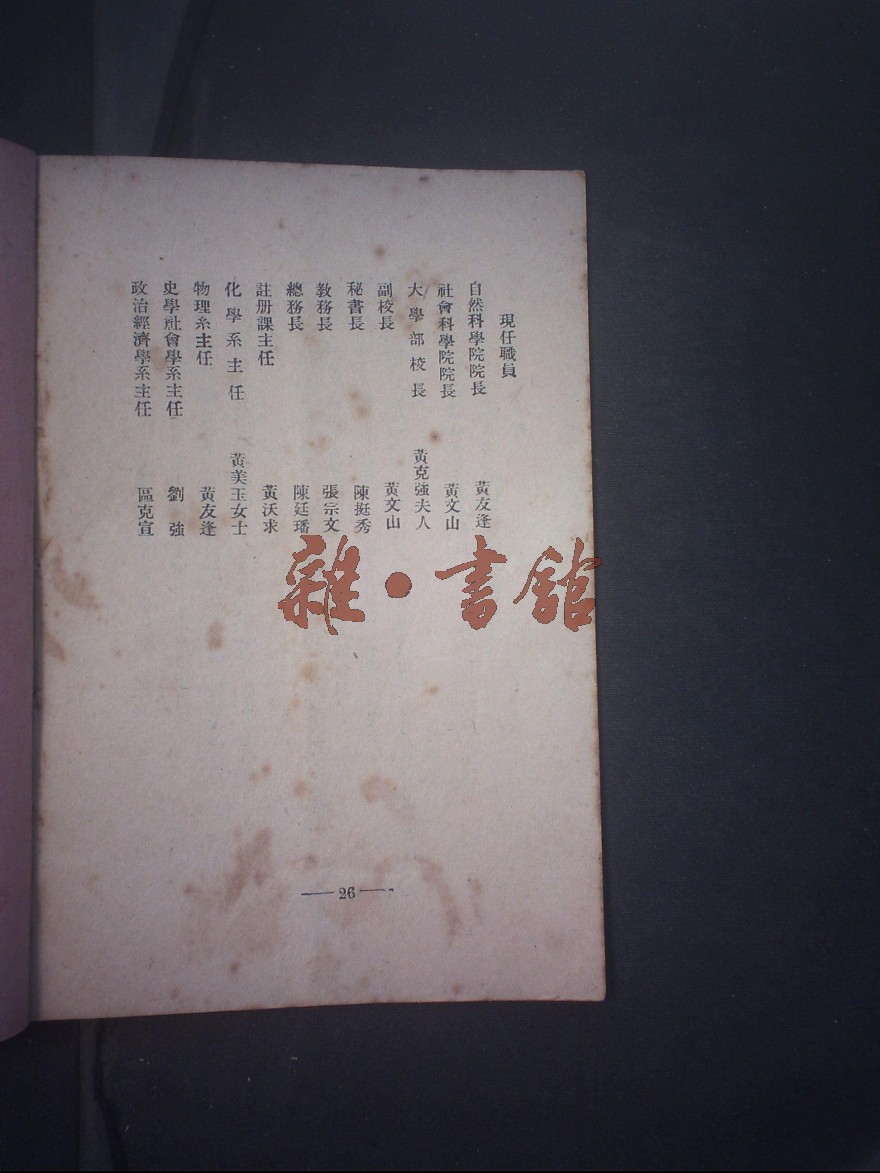 現任職員
自然科學院院長　黃友逢
社會科學院院長　黃文山
大學部校長　黃克強夫人
副校長　黃文山
秘書長　陳挺秀
教務長　張宗文
總務長　陳廷璠
註册課主任　黃沃求
化學系主任　黃美玉女士
物理系主任　黃友逢
史學社會學系主任　劉強
政治經濟學系主任　區克宣
雜·書館
26